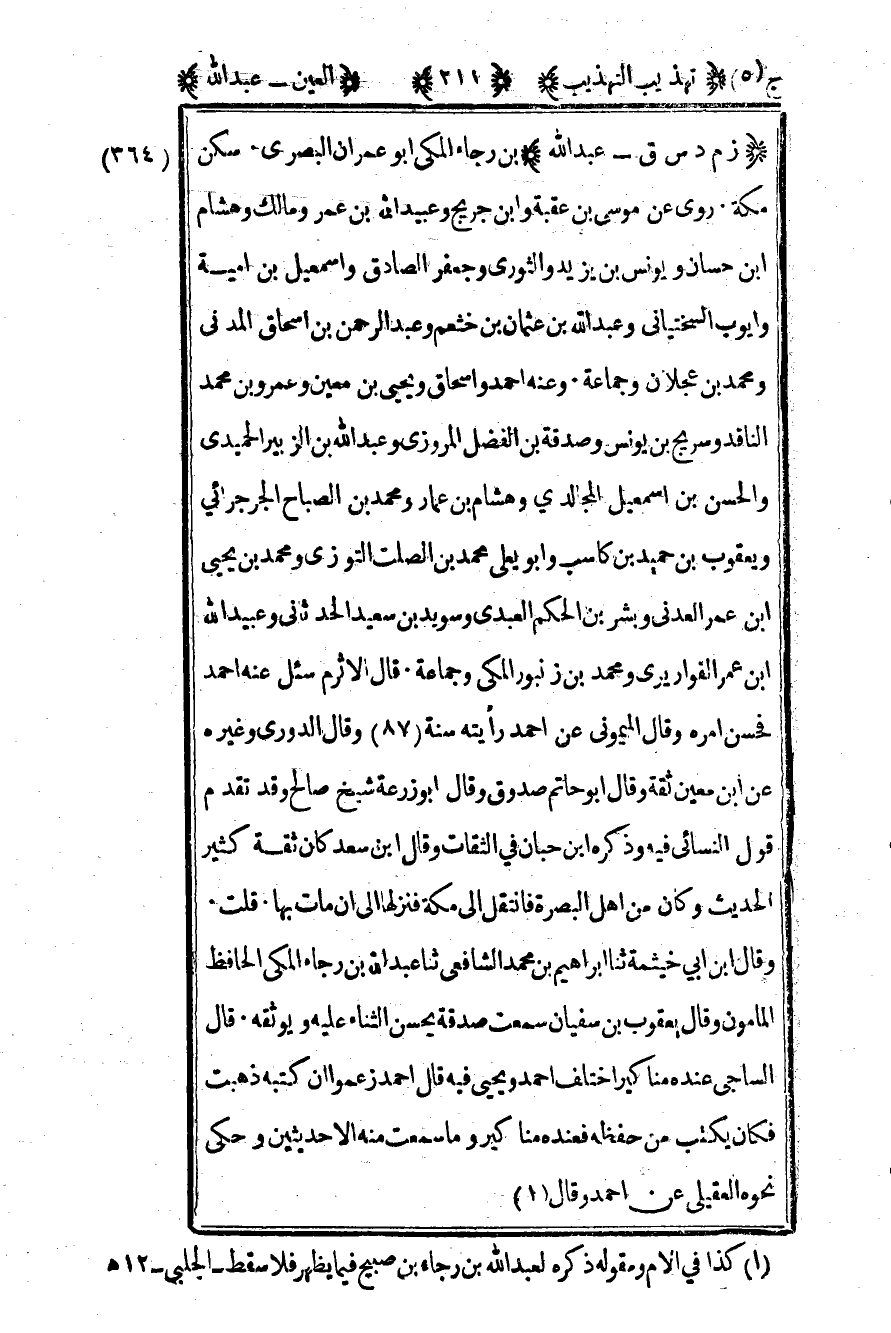 ج (٥) ﴿ تهذيب التهذيب ﴾ ﴿ ٢١١ ﴾ ﴿ العين ـ عبدالله ﴾
﴿ ز م د س ق ـ عبدالله ﴾ بن رجاء المكى ابو عمران البصرى ٠ سكن (٣٦٤)
مكة ٠ روى عن موسى بن عقبة وابن جريج وعبيدالله بن عمر ومالك وهشام
ابن حسان ويونس بن يزيد والثورى وجعفر الصادق واسمعيل بن امية
وايوب السختيانى وعبدالله بن عثمان بن خثعم وعبدالرحمن بن اسحاق المدنى
ومحمد بن عجلان وجماعة ٠ وعنه احمد واسحاق ويحيى بن معين وعمرو بن محمد
الناقد وسريج بن يونس وصدقة بن الفضل المروزى وعبدالله بن الزبير الحميدى
والحسن بن اسمعيل المجالدي وهشام بن عمار ومحمد بن الصباح الجرجرائي
ويعقوب بن حميد بن كاسب وابو يعلى محمد بن الصلت التوزى ومحمد بن يحيى
ابن عمر العدنى وبشر بن الحكم العبدى وسويد بن سعيد الحدثانى وعبيدالله
ابن عمر القواريرى ومحمد بن زنبور المكى وجماعة ٠ قال الاثرم سئل عنه احمد
فحسن امره وقال الميمونى عن احمد رأيته سنة (٨٧) وقال الدورى وغيره
عن ابن معين ثقة وقال ابو حاتم صدوق وقال ابو زرعة شيخ صالح وقد تقدم
قول النسائى فيه وذكره ابن حبان في الثقات وقال ابن سعد كان ثقة كثير
الحديث وكان من اهل البصرة فانتقل الى مكة فنزلها الى ان مات بها ٠ قلت ٠
وقال ابن ابي خيثمة ثنا ابراهيم بن محمد الشافعى ثنا عبدالله بن رجاء المكى الحافظ
المامون وقال يعقوب بن سفيان سمعت صدقة يحسن الثناء عليه ويوثقه ٠ قال
الساجى عنده مناكير اختلف احمد ويحيى فيه قال احمد زعموا ان كتبه ذهبت
فكان يكتب من حفظه فعنده مناكير وما سمعت منه الا حديثين وحكى
نحوه العقيلى عن احمد وقال (١)
(١) كذا في الام ومقوله ذكره لعبدالله بن رجاء بن صبيح فيما يظهر فلا سقط ـ الجلبي ـ ١٢ ه